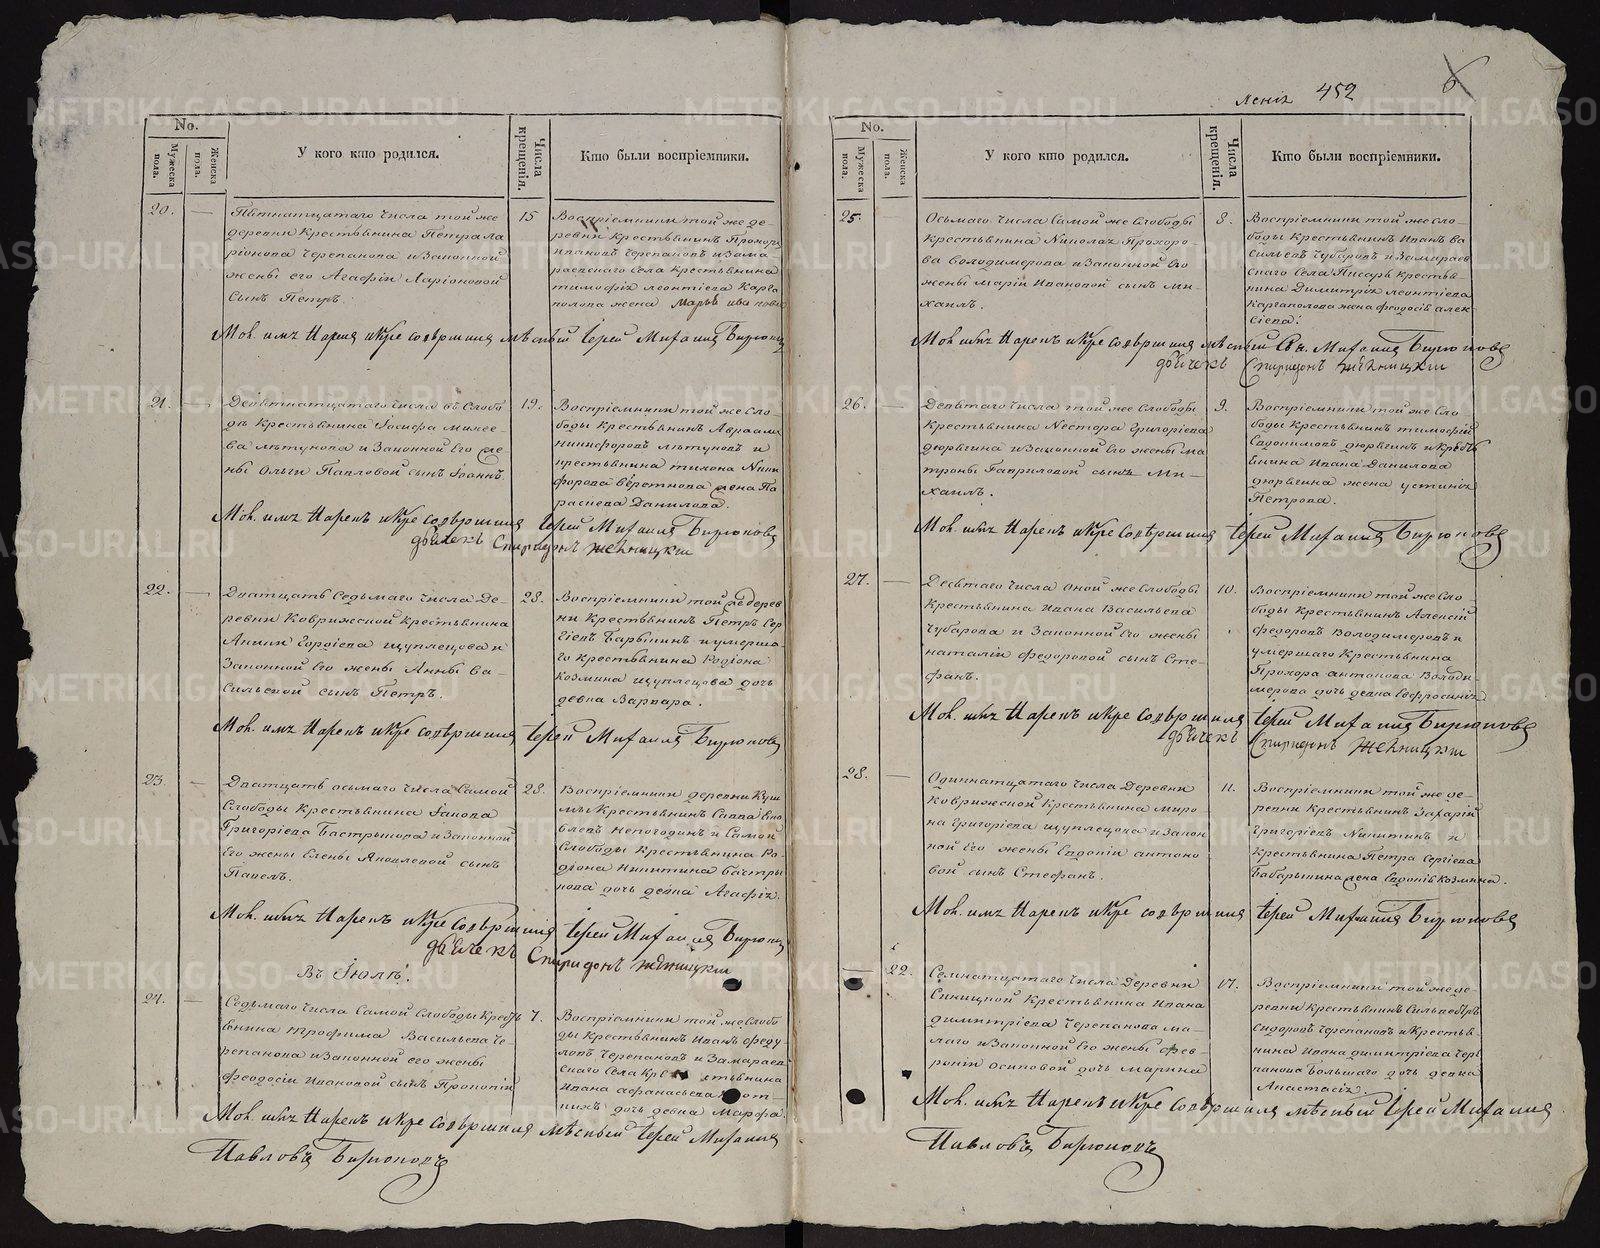 452
6
No.
Мужеска пола.
Женска пола.
У кого кто родился.
Числа крещенія.
Кто были воспріемники.
20. —
Пятнатцатаго числа той же
деревни Крестьянина Петра Ла
ріонова Черепанова и Законной
жены его Агафіи Ларіоновой
сынъ Петръ.
15
Воспріемники той же де-
ревни Крестьянинъ Прохоръ
Ивановъ Черепановъ и Зама-
раевскаго Села Крестьянина
Тимофѣя Леонтіева Карга
полова жена Марья Иванова
Мол. имъ Нарекъ и Кре совершилъ мѣстный Іерей Михаилъ Бирюковъ
21. —
Девятнатцатаго числа въ Слобо
дѣ Крестьянина Іосифа Михее-
ва Лѣтунова и Законной Его же
ны Ольги Павловой сынъ Іоаннъ
19.
Воспріемники той же Сло-
боды Крестьянинъ Авраамъ
Никифоровъ Лѣтуновъ и
крестьянина Тихона Ники
форова Верстнова жена Па
раскева Данилова.
Мол. имъ Нарекъ и Кре совершилъ Іерей Михаилъ Бирюковъ
дьячекъ Спиридонъ
22. —
Дватцать Седьмаго числа Де-
ревни Коврижской Крестьянина
Акима Гордіева Щуплецова и
Законной Его жены Анны Ва-
сильевой сынъ Петръ.
28.
Воспріемники той же дерев
ни Крестьянинъ Петръ Сер
гіевъ Барыкинъ и умерша-
го крестьянина Родіона
Козмина Щуплецова дочь
девка Варвара.
Мол. имъ Нарекъ и Кре совершилъ Іерей Михаилъ Бирюковъ
23. —
Дватцать осьмаго числа Самой
Слободы Крестьянина Іакова
Григоріева Бастрыкова и Законной
Его жены Елены Яковлевой сынъ
Павелъ.
28.
Воспріемники деревни
Крестьянинъ Савва
Непогодинъ и Самой
Слободы Крестьянина Ро-
діона Никитина Бастры
кова дочь девка Агафія.
Мол. имъ Нарекъ и Кре совершилъ Іерей Михаилъ Бирюковъ
дьячекъ Спиридонъ
Въ Іюлѣ.
24. —
Седьмаго числа Самой Слободы Кресть
янина Трофима Васильева Че-
репанова и Законной его жены
Феодосіи Ивановой сынъ Прокопій
7.
Воспріемники той же Слобо
ды Крестьянинъ Иванъ Феду
ловъ Черепановъ и Замараев
скаго Села Крестьянина
Ивана Афанасьева
дочь девка Марфа.
Мол. имъ Нарекъ и Кре совершилъ мѣстный Іерей Михаилъ
Павловъ Бирюковъ
No.
Мужеска пола.
Женска пола.
У кого кто родился.
Числа крещенія.
Кто были воспріемники.
25. —
Осьмаго числа Самой же Слободы
Крестьянина Николая Прохоро-
ва Володимерова и Законной Его
жены Маріи Ивановой сынъ Ми-
хаилъ.
8.
Воспріемники той же Сло-
боды Крестьянинъ Иванъ Ва
сильевъ Чубаровъ и Замараев
скаго Села Писаря Крестья
нина Димитрія Леонтіева
Каргаполова жена Феодосія Алек
сіева.
Мол. имъ Нарекъ и Кре совершилъ мѣстный Св. Михаилъ Бирюковъ
дьячекъ Спиридонъ
26. —
Девятаго числа той же Слободы
Крестьянина Нестора Григоріева
Дюрягина и Законной Его жены Ма
троны Гавриловой сынъ Ми-
хаилъ.
9.
Воспріемники той же Сло
боды Крестьянинъ Тимофей
Евдокимовъ Дюрягинъ и Кресть
янина Ивана Данилова
Дюрягина жена Устинія
Петрова.
Мол. имъ Нарекъ и Кре совершилъ Іерей Михаилъ Бирюковъ
27. —
Десятаго числа оной же Слободы
Крестьянина Ивана Васильева
Чубарова и Законной Его жены
Наталіи Федоровой сынъ Сте-
фанъ.
10.
Воспріемники той же Сло-
боды Крестьянинъ Алексій
Федоровъ Володимеровъ и
умершаго Крестьянина
Прохора Антонова Володи
мерова дочь девка Евфросинія
Мол. имъ Нарекъ и Кре совершилъ Іерей Михаилъ Бирюковъ
дьячекъ Спиридонъ
28. —
Одиннатцатаго числа Деревни
Коврижской Крестьянина Миро-
на Григоріева Щуплецова и Закон
ной Его жены Евдокіи Антоно
вой сынъ Стефанъ.
11.
Воспріемники той же де-
ревни Крестьянинъ Захарій
Григоріевъ Никитинъ и
Крестьянина Петра Сергіева
Бабарыкина жена Евдокія Козмина.
Мол. имъ Нарекъ и Кре совершилъ Іерей Михаилъ Бирюковъ
— 22.
Семнатцатаго числа Деревни
Синицкой Крестьянина Ивана
Димитріева Черепанова ма-
лаго и Законной Его жены Фев-
роніи Осиповой дочь Марина
17.
Воспріемники той же де-
ревни Крестьянинъ Сильвестръ
Сидоровъ Черепановъ и Крестья
нина Ивана Димитріева Чере
панова Большаго дочь девка
Анастасія
Мол. имъ Нарекъ и Кре совершилъ мѣстный Іерей Михаилъ
Павловъ Бирюковъ
METRIKI.GASO-URAL.RU